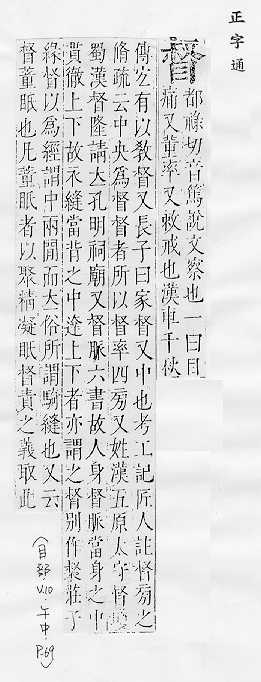 正字通
督
都祿切音篤說文察也一曰目
痛又董率又敕戒也漢車千秋
傳宏有以敎督又長子曰家督又中也考工記匠人註督旁之
脩疏云中央爲督督者所以督率四旁又姓漢五原太守督
蜀漢督隆請立孔明祠廟又督脈六書故人身督脈當身之中
貫徹上下故衣縫當背之中達上下者亦謂之督別作裻莊子
緣督以爲經謂中兩閒而立俗所謂騎縫也又云
督董眂也凡董眂者以聚精凝眂督責之義取此
(目部 V.10.午中. P.69)